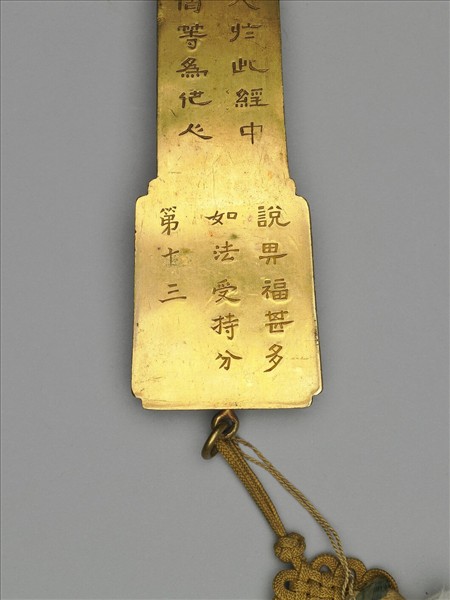 人於此經中
偈等為他人
說其福甚多
如法受持分
第十三